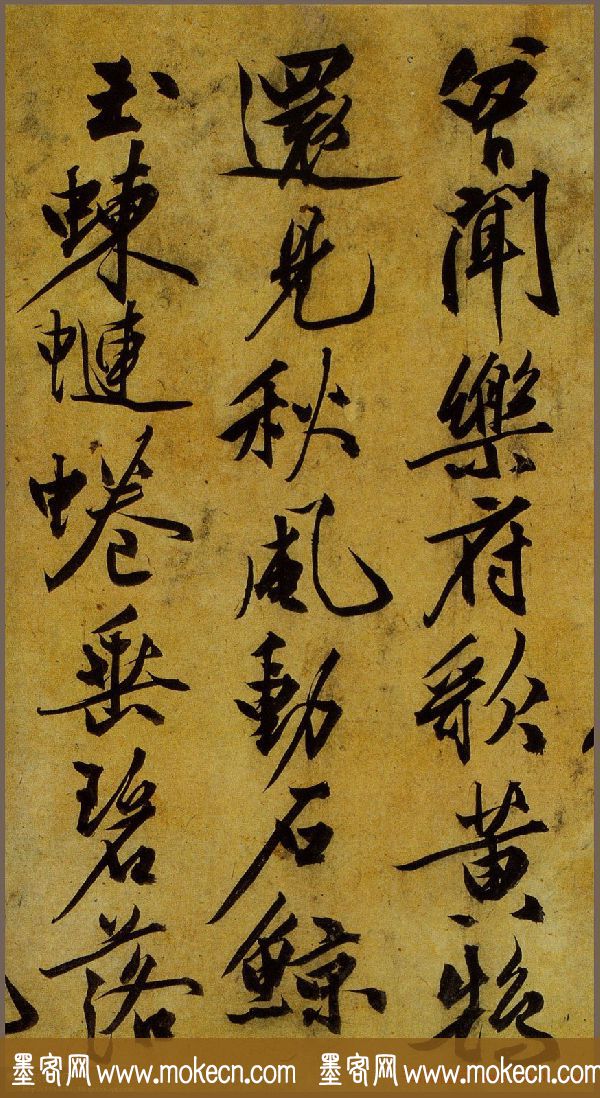 曾聞樂府歌黃鵠
還見秋風動石鯨
玉蝀𧐖蜷垂碧落
墨客网 www.mokecn.com 墨客网 www.mokecn.com